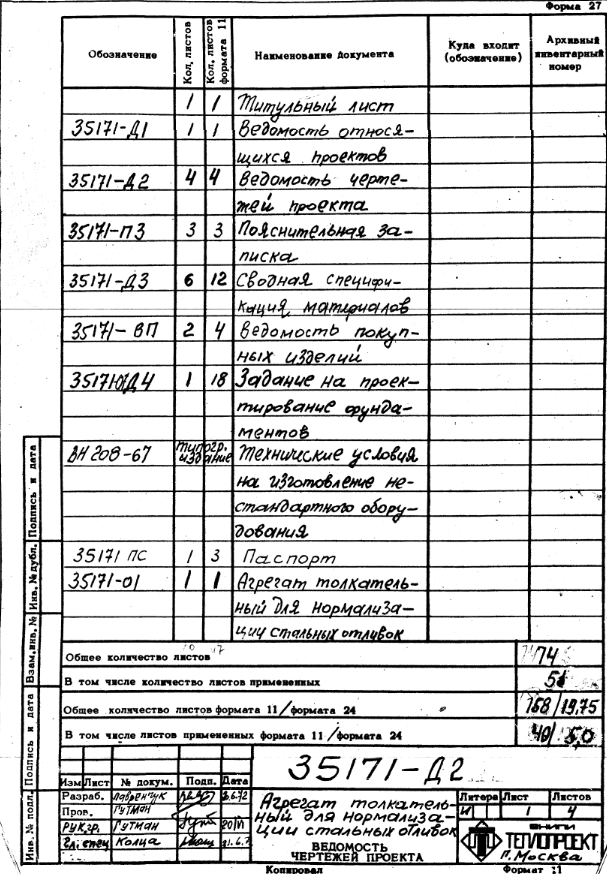 Форма 27
Обозначение Кол. листов Кол. листов формата 11 Наименование документа Куда входит (обозначение) Архивный инвентарный номер
1 1 Титульный лист
35171-Д1 1 1 Ведомость относя-
щихся проектов
35171-Д2 4 4 Ведомость черте-
жей проекта
35171-ПЗ 3 3 Пояснительная за-
писка
35171-Д3 6 12 Сводная специфи-
кация материалов
35171-ВП 2 4 Ведомость покуп-
ных изделий
35171 Д4 1 18 Задание на проек-
тирование фунда-
ментов
ВН 208-67 типогр. издание Технические условия
на изготовление не-
стандартного обору-
дования
35171 ПС 1 3 Паспорт
35171-01 1 1 Агрегат толкатель-
ный для нормализа-
ции стальных отливок
Общее количество листов 74
В том числе количество листов примененных
Общее количество листов формата 11/формата 24 168/19,75
В том числе листов примененных формата 11/формата 24 40/5,0
Подпись и дата
Инв. № дубл.
Взам. инв. №
Подпись и дата
Инв. № подл.
35171-Д2
Изм Лист № докум. Подп. Дата
Разраб. Лавренчук
Пров. Гутман
Рук.гр. Гутман 20/VI
Гл. спец Колца
Агрегат толкатель-
ный для нормализа-
ции стальных отливок
ВЕДОМОСТЬ
ЧЕРТЕЖЕЙ ПРОЕКТА
Литера Лист Листов
И 1 4
ВНИПИ
ТЕПЛОПРОЕКТ
г. Москва
Копировал Формат 11